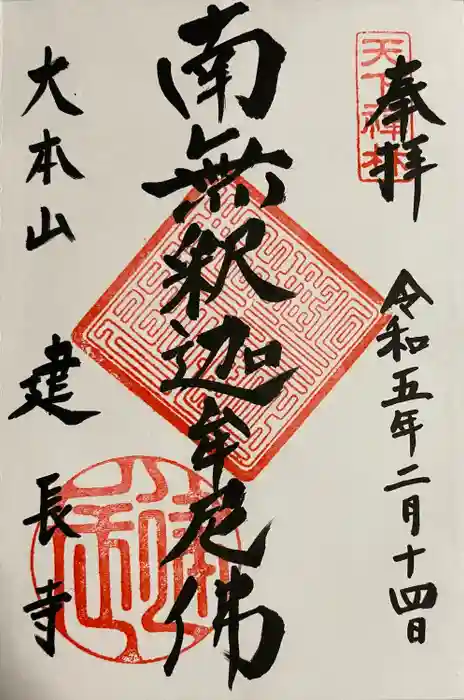 奉拝
天下禅林
令和五年二月十四日
南無釈迦牟尼佛
大本山
建長寺